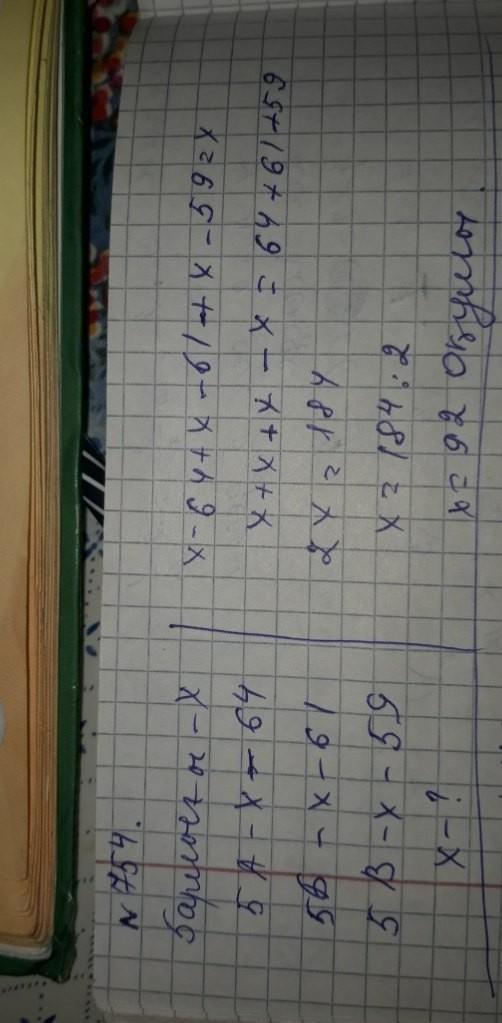 №754.
барлығы - x
5А - x - 64
5Б - x - 61
5В - x - 59
x - ?
x - 64 + x - 61 + x - 59 = x
x + x + x - x = 64 + 61 + 59
2x = 184
x = 184 : 2
x = 92 оқушы.